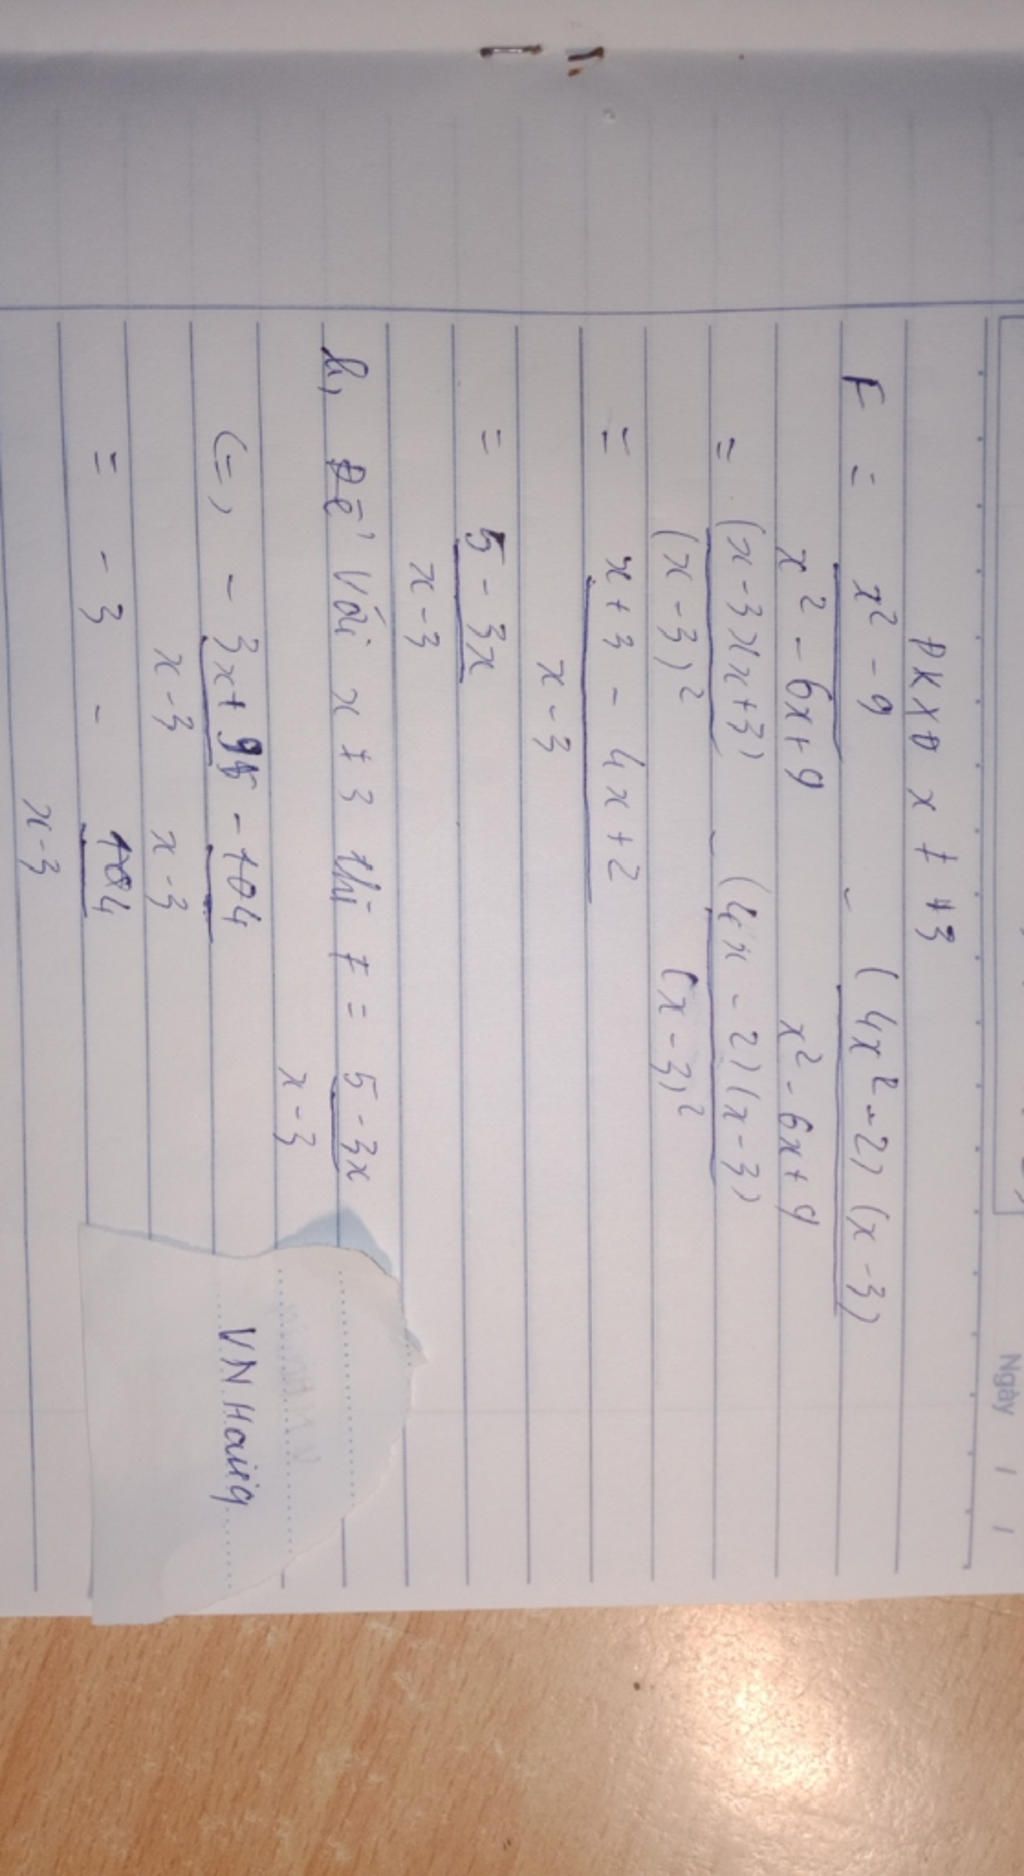 Ngày / /
ĐKXĐ x ≠ +3
F = x² - 9 / x² - 6x + 9 - (4x² - 2)(x - 3) / x² - 6x + 9
= (x - 3)(x + 3) / (x - 3)² - (4x - 2)(x - 3) / (x - 3)²
= x + 3 - 4x + 2 / x - 3
= 5 - 3x / x - 3
b, Để Với x ≠ 3 thì F = 5 - 3x / x - 3
(=) - 3x + 9 / x - 3 - 4 / x - 3
= - 3 - 4 / x - 3
VN Hang